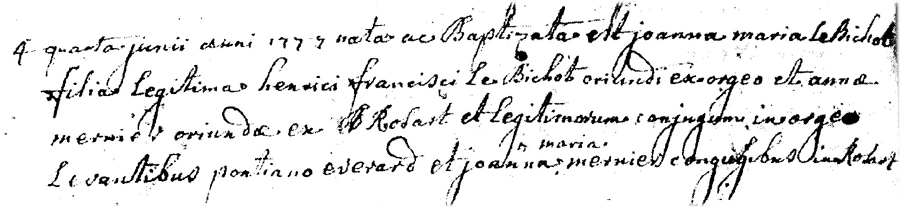 4 quarta junii anni 1777 nata ac Baptizata est joanna maria le Bichot
filia Legitima henrici francisci Le Bichot oriundi ex orgeo et annæ
mernier oriundæ ex Rosart et Legitimorum conjugum in orgeo
maria
Levantibus pontiano everard et joanna mernier conjugibus in Rosart